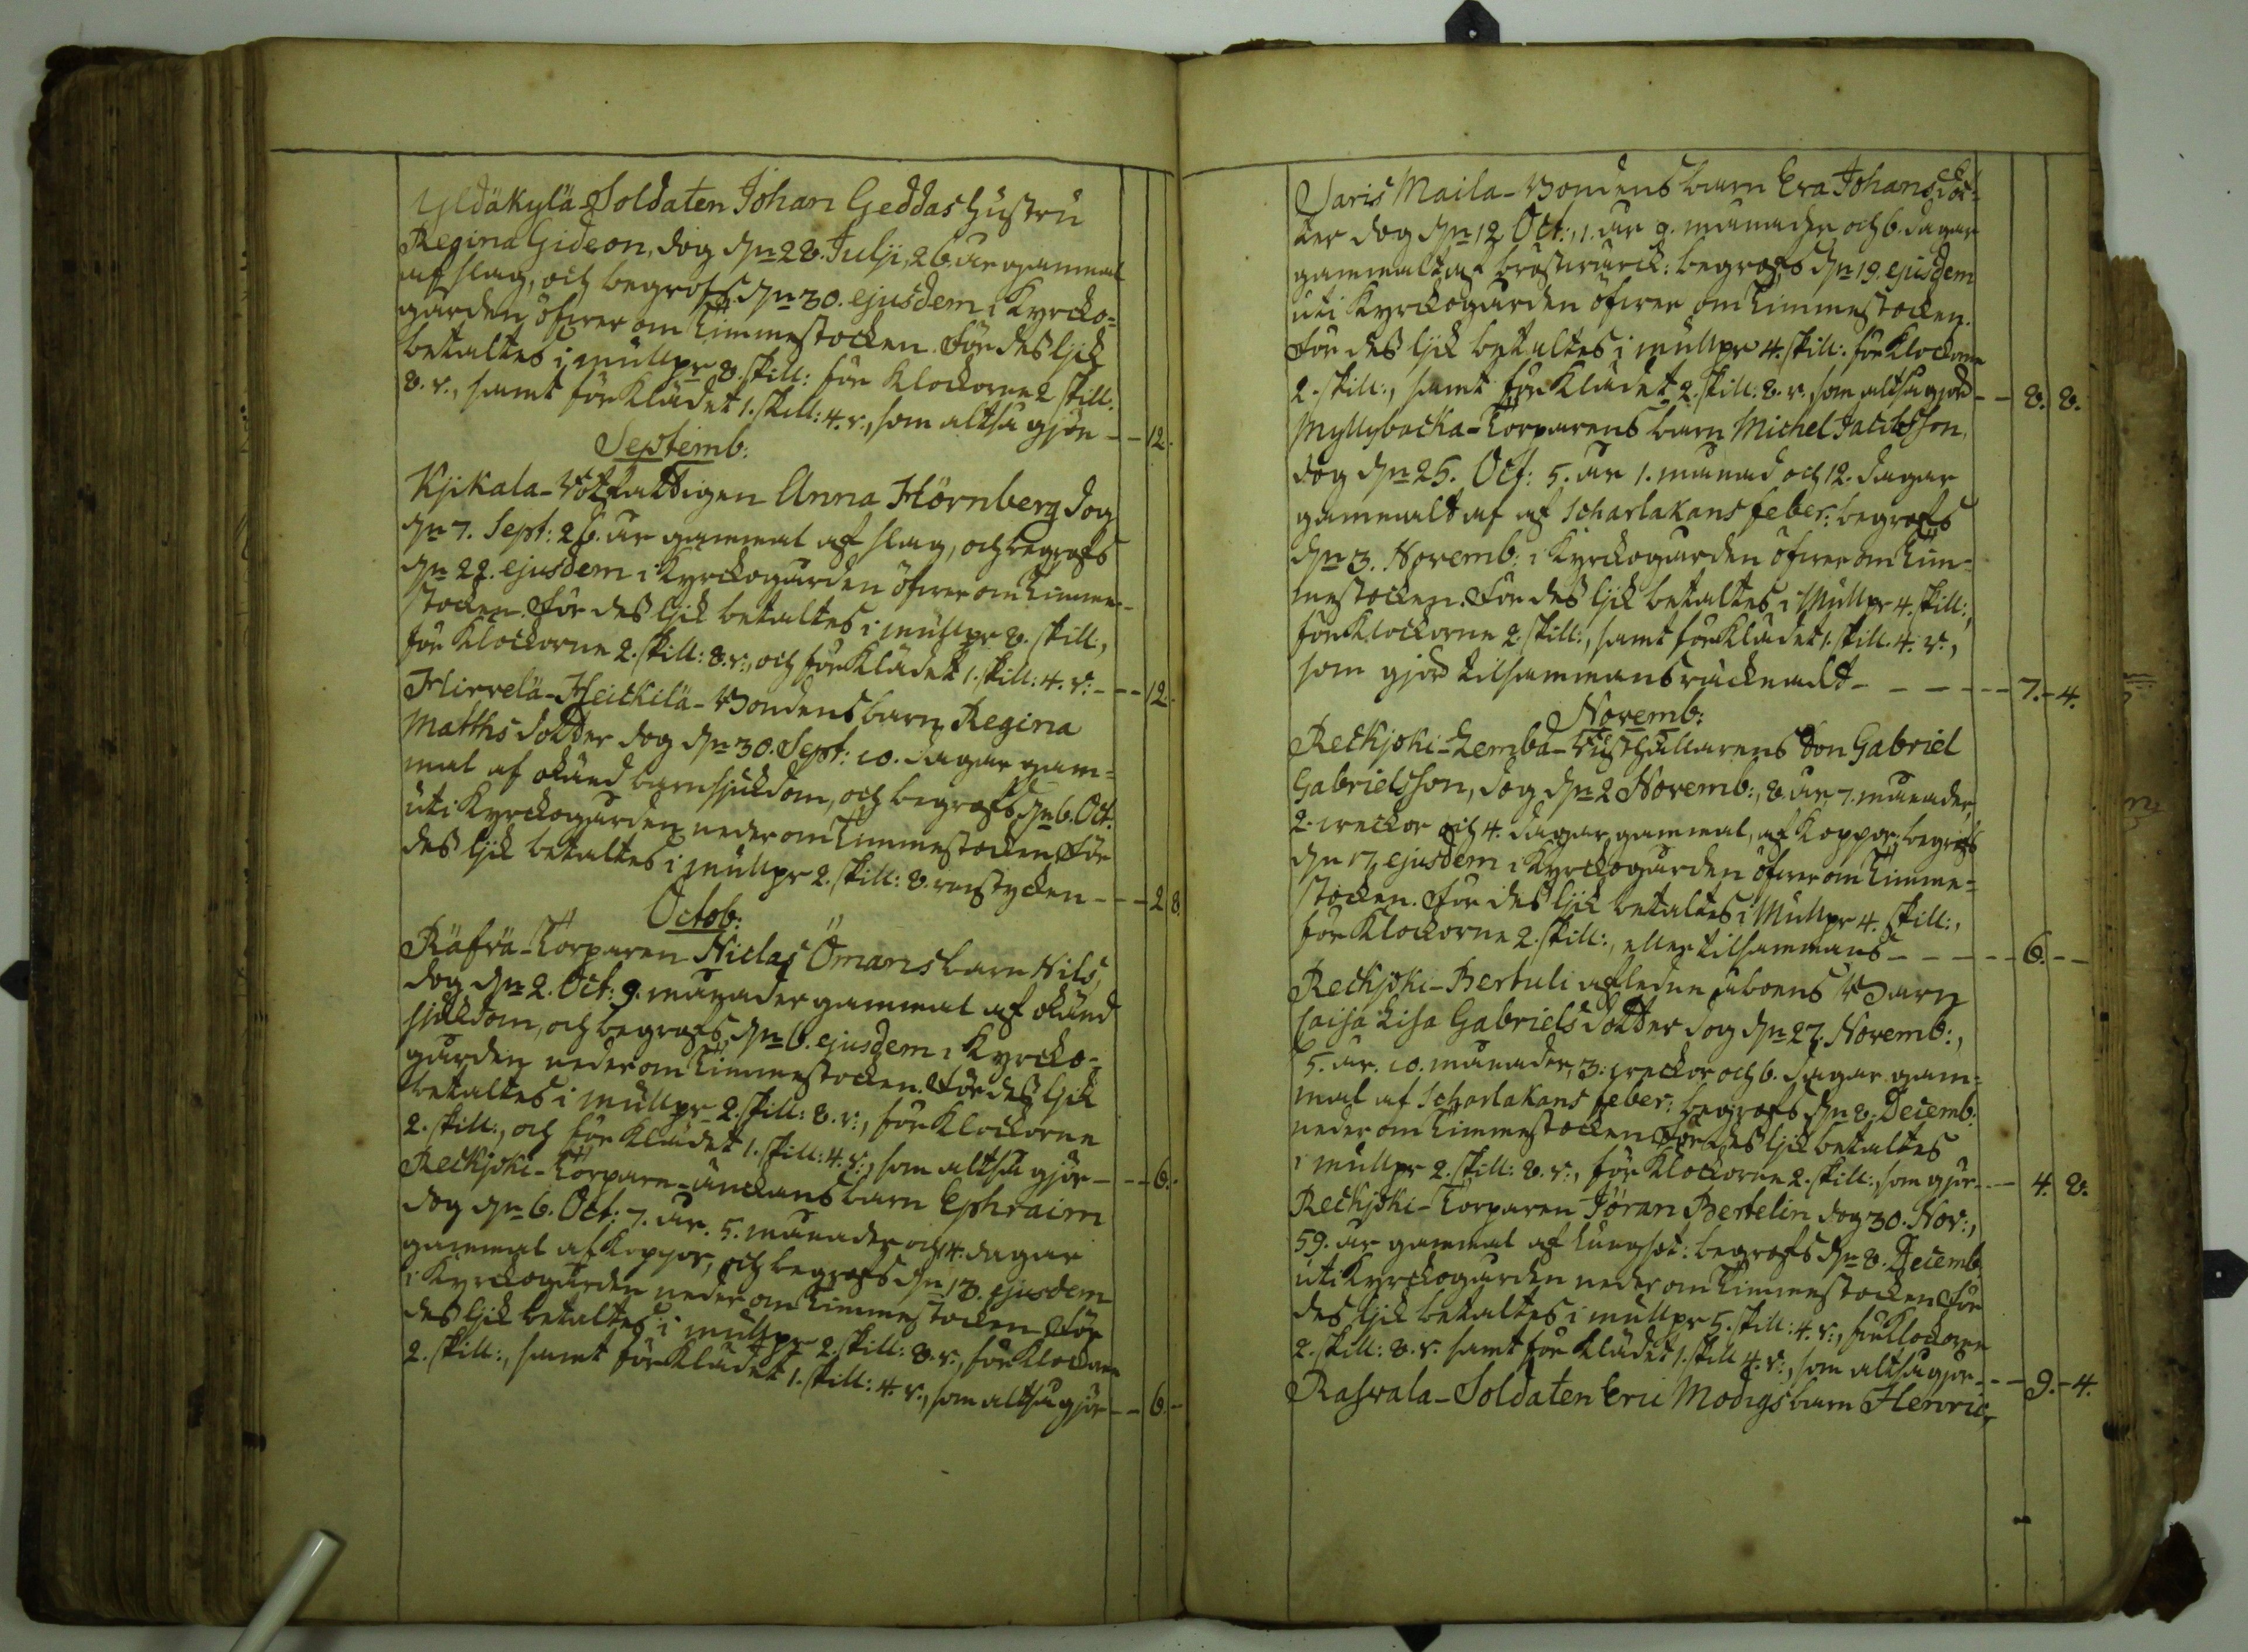 Yldäkylä-Soldaten Johan Geddas hustru
Regina Gideon, dog dn 28. Julji, 26. år gammal
af slag, och begrofs dn 30. ejusdem i Kyrcko=
gården öfwer om Timmestocken. För des lijk
betaltes i mullpr 8. skill: för Klockorne 2 skill:
8. r., samt för Klädet 1. skill: 4. r., som altså gjör - - 12.
Septemb:
Kjikala- Rotfattigen Anna Hörnberg dog
dn 7. Sept: 26. år gammal af slag, och begrofs
dn 22. ejusdem i Kyrckogården öfwer om Timme-
stocken. För des lijk betaltes i mullpr 8. skill:,
för Klockorne 2. skill: 8. r:, och för Klädet 1. skill: 4. r: - - - 12.
Hirvelä-Heickilä-Bondens barn Regina
Matths dotter dog dn 30. Sept: 10. dagar gam=
mal af okänd barnsjukdom, och begrofs dn 6. Oct.
uti Kyrckogården neder om Timmestocken. För
des lijk betaltes i mullpr 2. skill: 8. runstycken - - - 2 8.
Octob:
Räfvä-Torparen Niclas Ömans barn Nils,
dog dn 2. Oct: 9. månader gammal af okänd
sjukdom, och begrofs dn 6. ejusdem i Kyrcko-
gården neder om Timmestocken. För des lijk
betaltes i mullpr 2. skill: 8. r:, för Klockorne
2. skill:, och för Klädet 1. skill: 4. r:, som altså gjör - - - 6.
Reckjoki-Torpare-änckans barn Ephraim
dog dn 6. Oct: 7. år. 5. månader och 4. dagar
gammal af Koppor, och begrofs dn 13. ejusdem
i Kyrckogården neder om Timmestocken. För
des lijk betaltes i mullpr 2. skill: 8. r., för Klockorne
2. skill:, samt för Klädet 1. skill: 4. r., som altså gjör - - 6. -
Saris Maila-Bondens barn Eva Johans dot=
ter dog dn 12 Oct:, 1. år 9. månader och 6. dagar
gammalt af bröstwärck: begrofs dn 19. ejusdem
uti Kyrckogården öfwer om Timmestocken.
För des lijk betaltes i mullpr 4. skill: för Klockorne
2. skill:, samt för Klädet 2. skill: 8. r., som altså gjör - - 8. 8.
Myllybacka-Torparens barn Michel Jacobsson,
dog dn 25. Oct: 5. år 1. månad och 12. dagar
gammalt af af Scharlakans feber: begrofs
dn 3. Novemb: i Kyrckogården öfwer om Tim=
mestocken. För des lijk betaltes i Mullpr 4. skill:,
för Klockorne 2. skill:, samt för Klädet 1. skill. 4. r.,
som gjör tilsammans räcknadt - - - - 7. - 4.
Novemb:
Reckjoki-Lemba-Rusthållarens Son Gabriel
Gabrielsson, dog dn 2 Novemb:, 8. år, 7. månader,
2. weckor och 4. dagar gammal, af Koppor: begrofs
dn 17. ejusdem i Kyrckogården öfwer om Timme=
stocken. För des lijk betaltes i Mullpr 4. skill:,
för Klockorne 2. skill:, eller tilsammans - - - - - 6. - -
Reckjoki-Bertuli afledne åboens Barn
Caisa Lisa Gabriels dotter dog dn 27. Novemb:,
5. år. 10. månader, 3. weckor och 6. dagar gam=
mal af Scharlakans feber: begrofs dn 8. Decemb:
neder om Timmestocken. För des lijk betaltes
i mullpr 2. skill: 8. r:, för Klockorne 2. skill:, som gjör - - - 4. 8.
Reckjoki-Torparen Jöran Bertelin dog 30. Nov:,
59. år gammal af lungsot: begrofs dn 8. Decemb.
uti Kyrckogården neder om Timmestocken. För
des lijk betaltes i mullpr 5. skill: 4. r:, för Klockorne
2. skill: 8. r. samt för Klädet 1. skill 4. r:, som altså gjör - - - 9. - 4.
Rasvala-Soldaten Eric Modigs barn Henric,